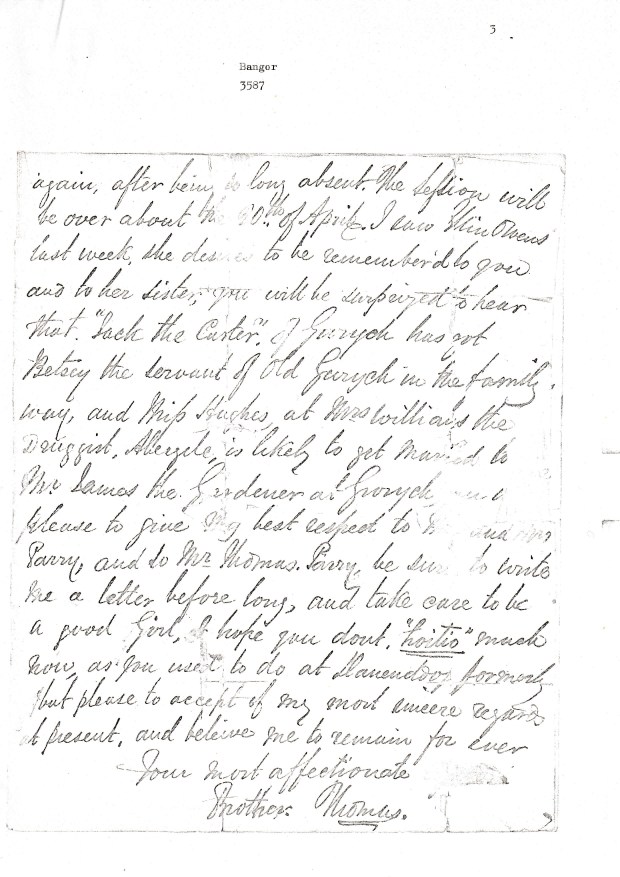 3
Bangor
3587
again, after being so long absent. The Session will
be over about the 30th of April. I saw Owens
last week, she desires to be rememberd to you
and to her sister, you will be surprized to hear
that "Jack the Carter", of Gwrych has got
Betsey the servant of Old Gwrych in the family
way, and Miss Hughes at Mrs Williams the
Druggist, Abergele, is likely to get married to
Mr James the Gardener at Gwrych
please to give my best respect to Mr and Mrs
Parry, and to Mr Thomas Parry, be sure to write
me a letter before long, and take care to be
a good Girl, I hope you dont, much
now, as you used to do at formerly
but please to accept of my most sincere regards
at present, and beleive me to remain for ever
Your most affectionate
Brother. Thomas.